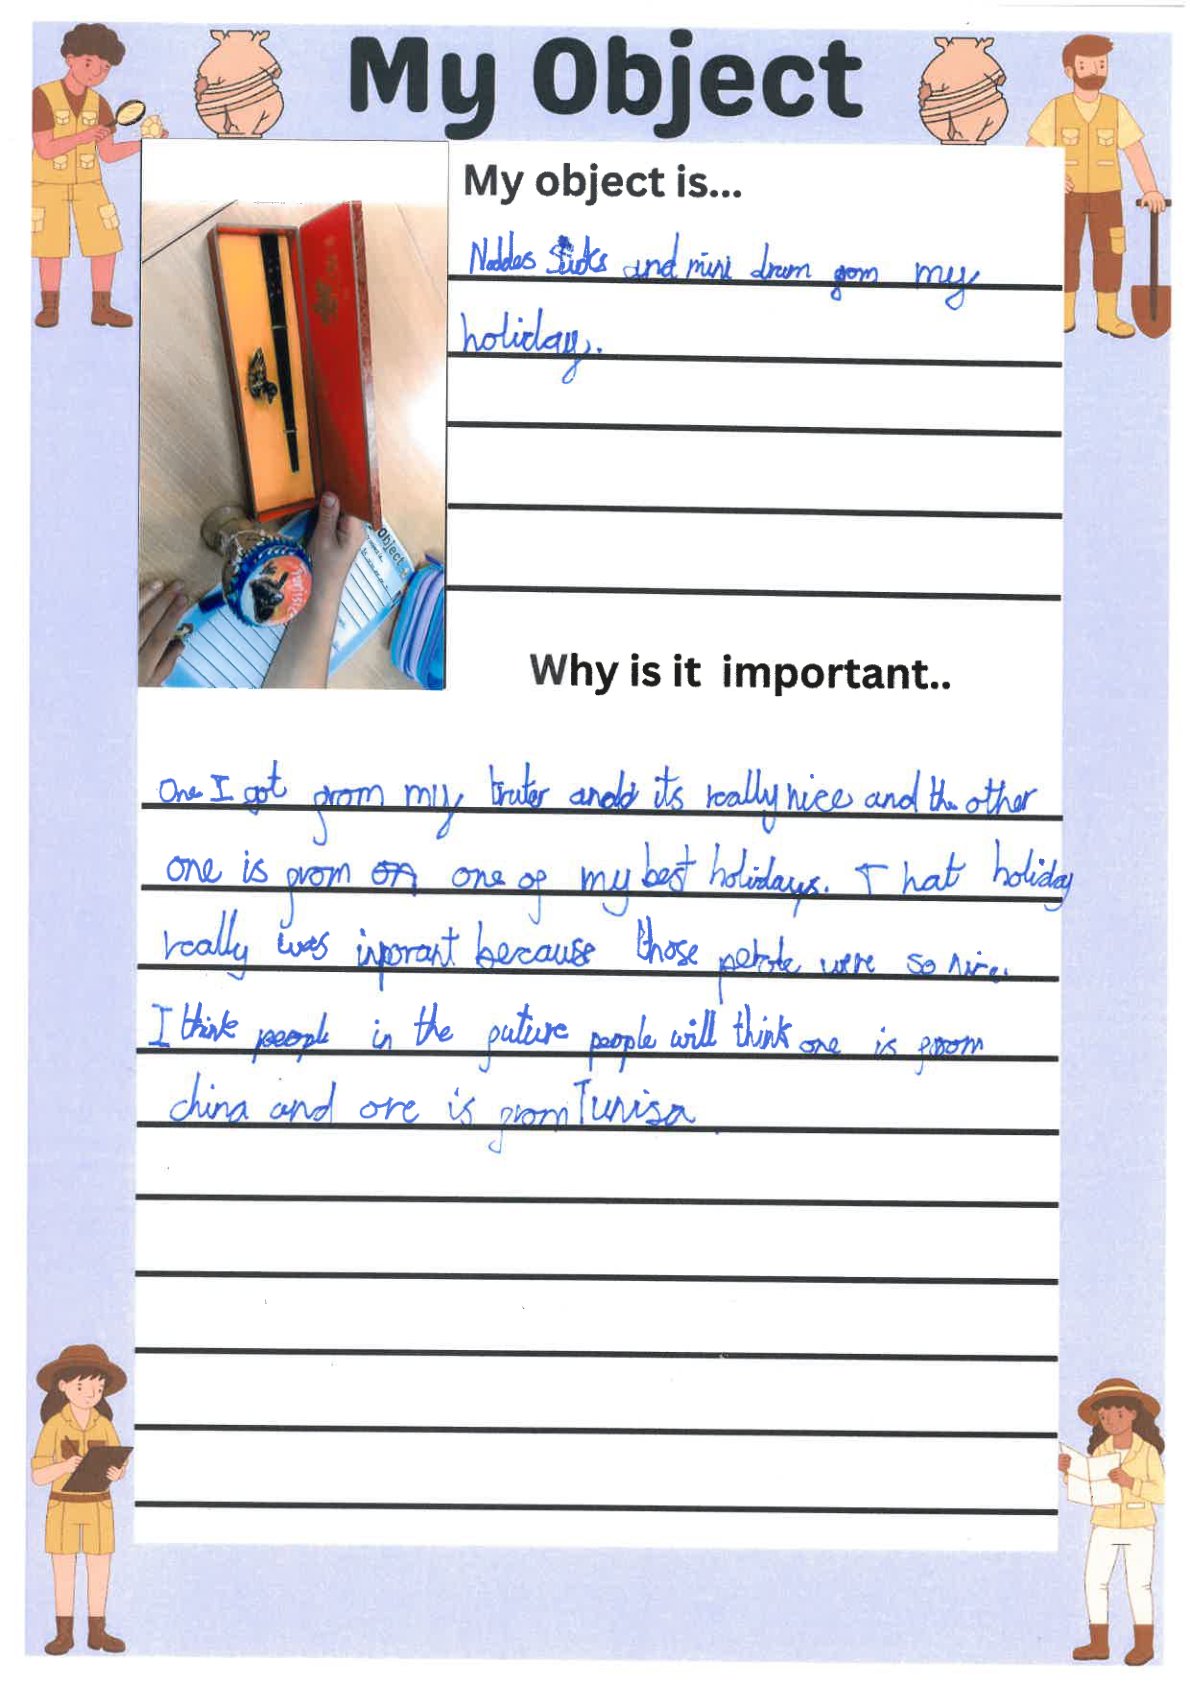 My Object
My object is...
Noddes Sticks and mini drum from my
holiday.
Object
Tunisie
Why is it important..
One I got from my and its really nice and the other
one is from on one of my best holidays. That holiday
really was inporant because those were so nice.
I think people in the future people will think one is from
china and one is from Tunisa